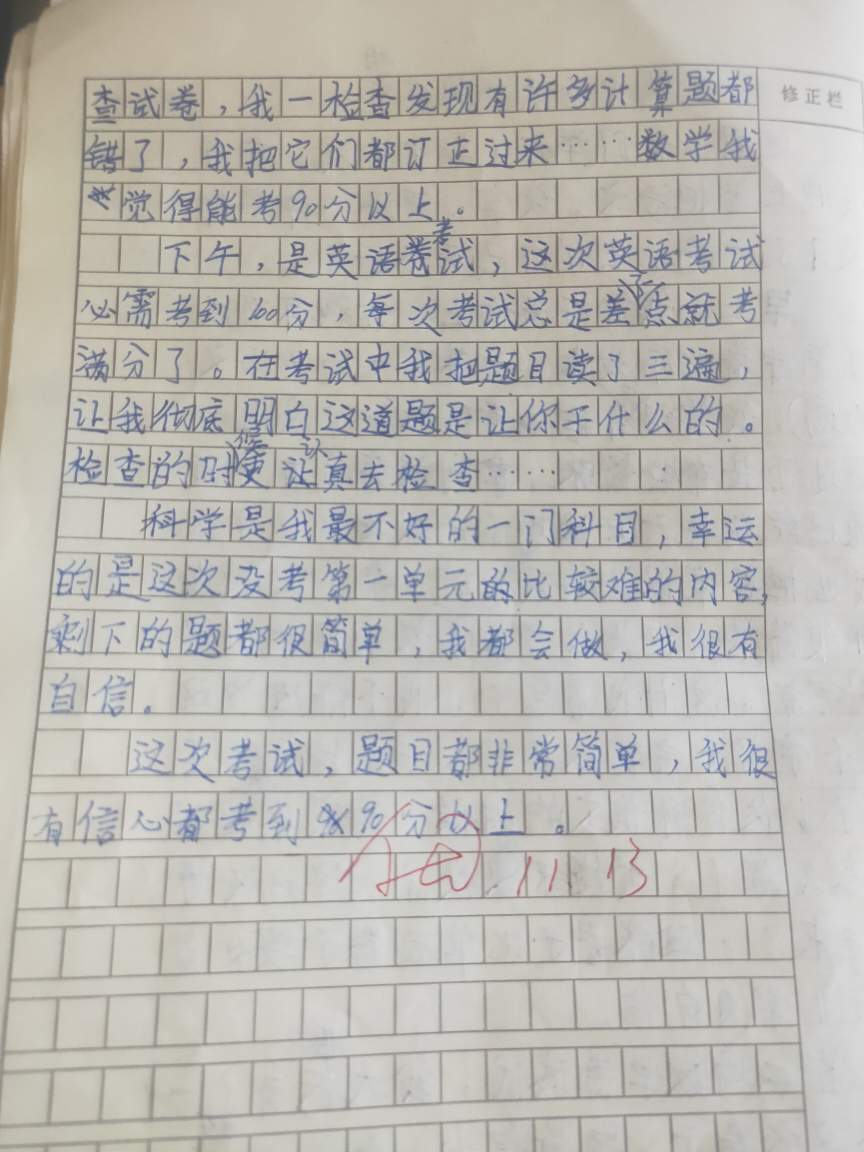 查试卷，我一检查发现有许多计算题都
修正栏
错了，我把它们都订正过来……数学我
觉得能考90分以上。
下午，是英语考试，这次英语考试
必需考到100分，每次考试总是差了点就考
满分了。在考试中我把题目读了三遍，
让我彻底明白这道题是让你干什么的。
检查的时候认真去检查……
科学是我最不好的一门科目，幸运
的是这次没考第一单元的比较难的内容，
剩下的题都很简单，我都会做，我很有
自信。
这次考试，题目都非常简单，我很
有信心都考到90分以上。
11.13